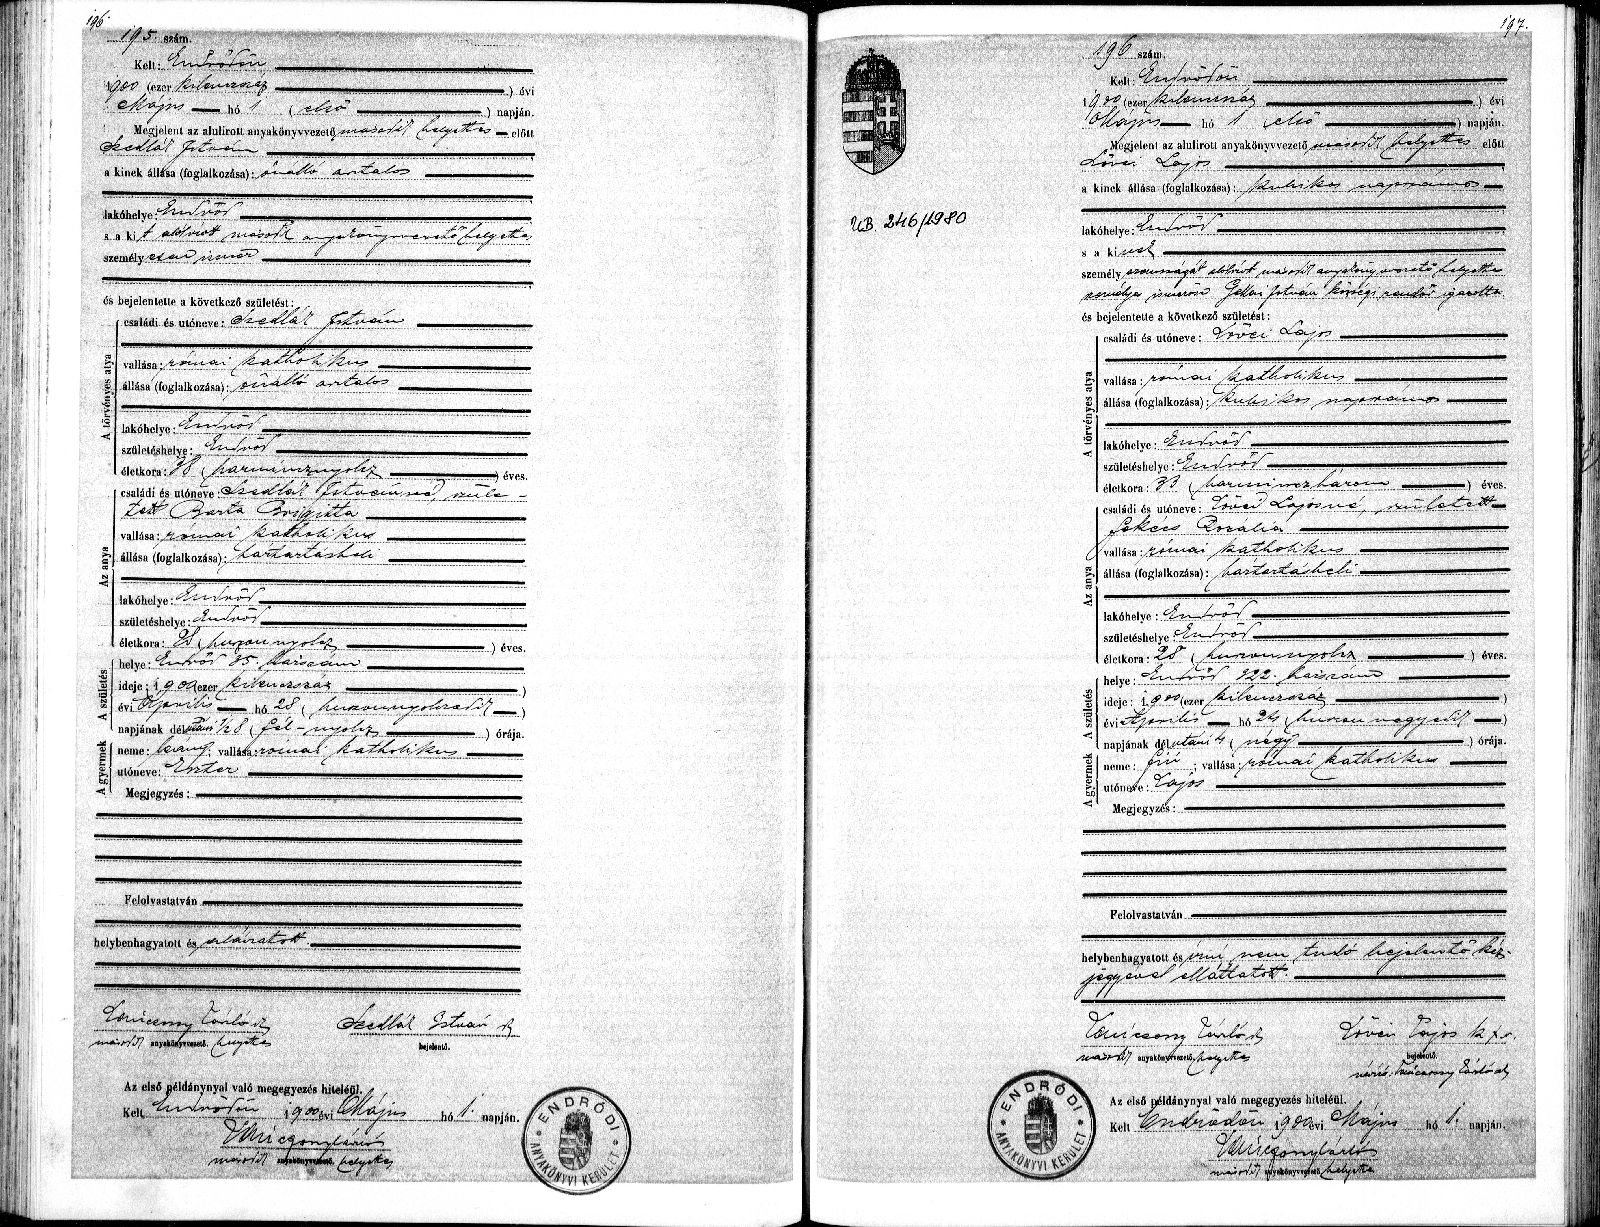 196.
195. szám.
Kelt: Endrődön
1900 (ezer kilenczszáz ) évi
Május hó 1 (első ) napján.
Megjelent az alulirott anyakönyvvezető második helyettes előtt
Szedlák István
a kinek állása (foglalkozása): önálló
lakóhelye: Endrőd
s a kit alulirott másodk anyakönyvvezető helyettes
személyesen ismer
és bejelentette a következő születést:
A törvényes atya
családi és utóneve: Szedlák István
vallása: római katholikus
állása (foglalkozása): önálló
lakóhelye: Endrőd
születéshelye: Endrőd
életkora: 38 (harmincznyolcz ) éves.
Az anya
családi és utóneve: Szedlák Istvánné, szüle-
tett Barta Brigitta
vallása: római katholikus
állása (foglalkozása): háztartásbeli
lakóhelye: Endrőd
születéshelye: Endrőd
életkora: 28 (huszonnyolcz ) éves.
A születés
helye: Endrőd 85. házszám
ideje: 1900 (ezer kilenczszáz )
évi Április hó 28 (huszonnyolczadik )
napjának délután 1/2 8 (fél-nyolcz ) órája.
A gyermek
neme: leány; vallása: római katholikus
utóneve: Eszter
Megjegyzés:
Felolvastatván
helybenhagyatott és aláiratott.
másodk anyakönyvvezető. helyettes
Szedlák István
bejelentő.
Az első példánynyal való megegyezés hiteléül.
Kelt Endrődön 1900 évi Május hó 1. napján.
másodk anyakönyvvezető. helyettes
ENDRŐDI
ANYAKÖNYVI KERÜLET
197.
UB. 246/1980
196 szám.
Kelt: Endrődön
1900 (ezer kilenczszáz ) évi
Május hó 1 (első ) napján.
Megjelent az alulirott anyakönyvvezető másodk helyettes előtt
Lövei Lajos
a kinek állása (foglalkozása): kubikos napszámos
lakóhelye: Endrőd
s a kinek
személyazonosságát alulirott másodk anyakönyvvezető helyettes
személyes ismerőse István községi rendőr igazolta
és bejelentette a következő születést:
A törvényes atya
családi és utóneve: Lövei Lajos
vallása: római katholikus
állása (foglalkozása): kubikos napszámos
lakóhelye: Endrőd
születéshelye: Endrőd
életkora: 33 (harminczhárom ) éves.
Az anya
családi és utóneve: Lövei Lajosné, született
Rozália
vallása: római katholikus
állása (foglalkozása): háztartásbeli
lakóhelye: Endrőd
születéshelye: Endrőd
életkora: 28 (huszonnyolcz ) éves.
A születés
helye: Endrőd 922. házszám
ideje: 1900 (ezer kilenczszáz )
évi Április hó 24 (huszonnegyedik )
napjának délutáni 4 (négy ) órája.
A gyermek
neme: fiú; vallása: római katholikus
utóneve: Lajos
Megjegyzés:
Felolvastatván
helybenhagyatott és írni nem tudó bejelentő kéz-
jegyével elláttatott.
másodk anyakönyvvezető. helyettes
Lövei Lajos k.
bejelentő.
Az első példánynyal való megegyezés hiteléül.
Kelt Endrődön 1900 évi Május hó 1. napján.
másodk anyakönyvvezető. helyettes
ENDRŐDI
ANYAKÖNYVI KERÜLET